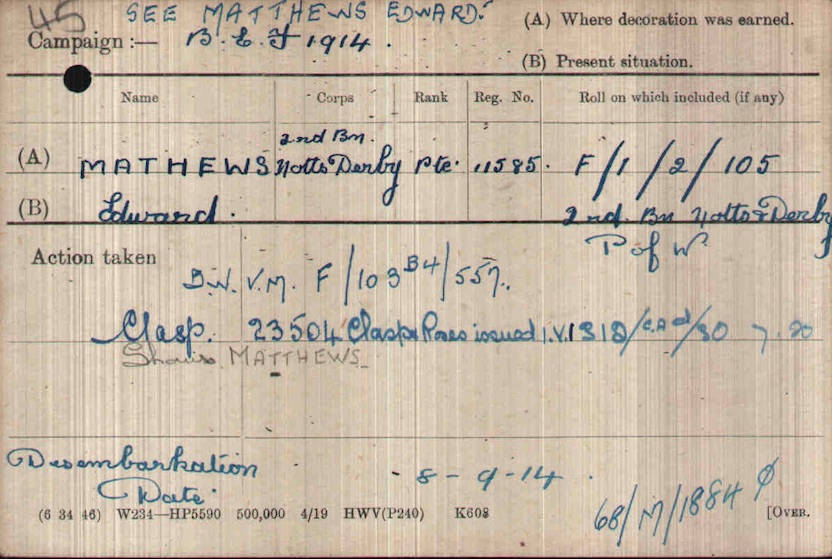 45
SEE MATTHEWS EDWARD.
(A) Where decoration was earned.
Campaign :— B.E.F 1914.
(B) Present situation.
Name Corps Rank Reg. No. Roll on which included (if any)
2nd Bn.
(A) MATHEWS Notts Derby Pte. 11585. F/1/2/105
(B) Edward. 2nd. Bn Notts & Derby
P of W.
Action taken
F/103B4/557.
Clasp. 23504 Clasps Roses issued I.V.1318/ /30 7.20
Shows MATTHEWS
Desembarkation - 8-9-14.
Date
68/M/1884
(6 34 46) W234—HP5590 500,000 4/19 HWV(P240) K608 [OVER.